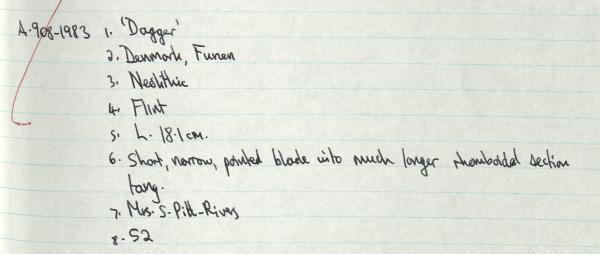 A.908-1983 1. 'Dagger'
2. Denmark, Funen
3. Neolithic
4. Flint
5. L. 18.1cm.
6. Short, narrow, pointed blade into much longer rhomboidal section
tang.
7. Mrs. S. Pitt-Rivers
8. 52